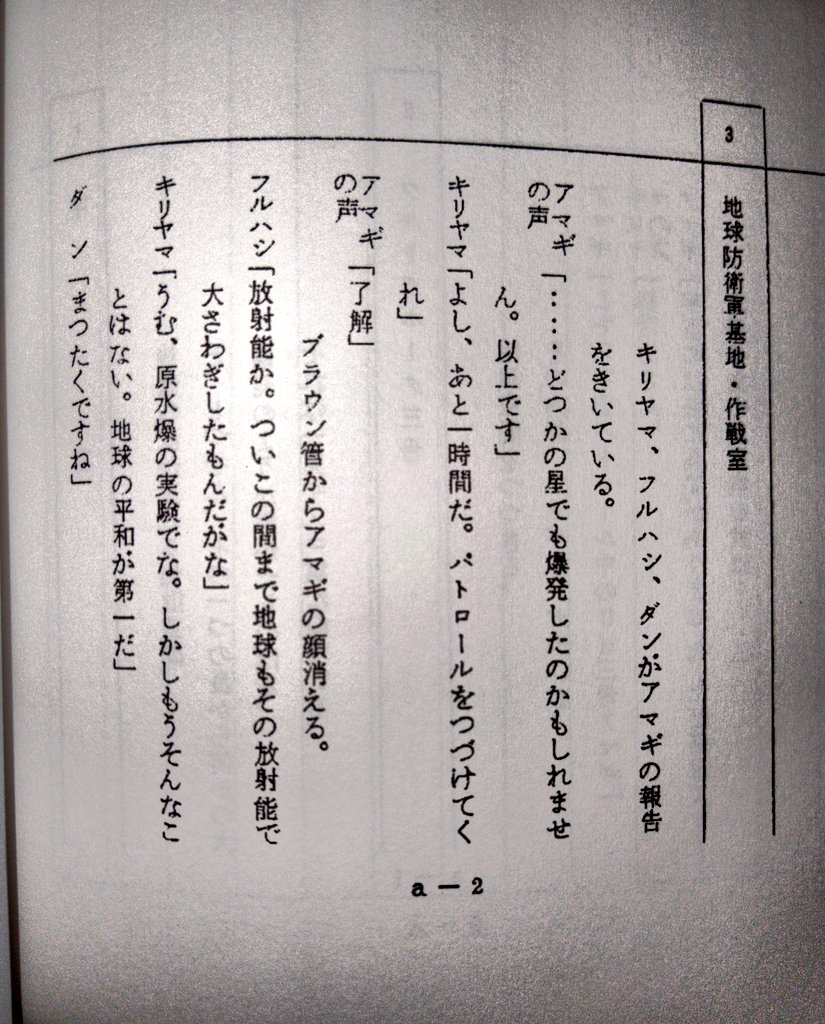 3
地球防衛軍基地・作戦室
キリヤマ、フルハシ、ダンがアマギの報告
をきいている。
アマギ
の声
「……どつかの星でも爆発したのかもしれませ
ん。以上です」
キリヤマ「よし、あと一時間だ。パトロールをつづけてく
れ」
アマギ
の声
「了解」
ブラウン管からアマギの顔消える。
フルハシ「放射能か。ついこの間まで地球もその放射能で
大さわぎしたもんだがな」
キリヤマ「うむ、原水爆の実験でな。しかしもうそんなこ
とはない。地球の平和が第一だ」
ダン「まつたくですね」
a－2